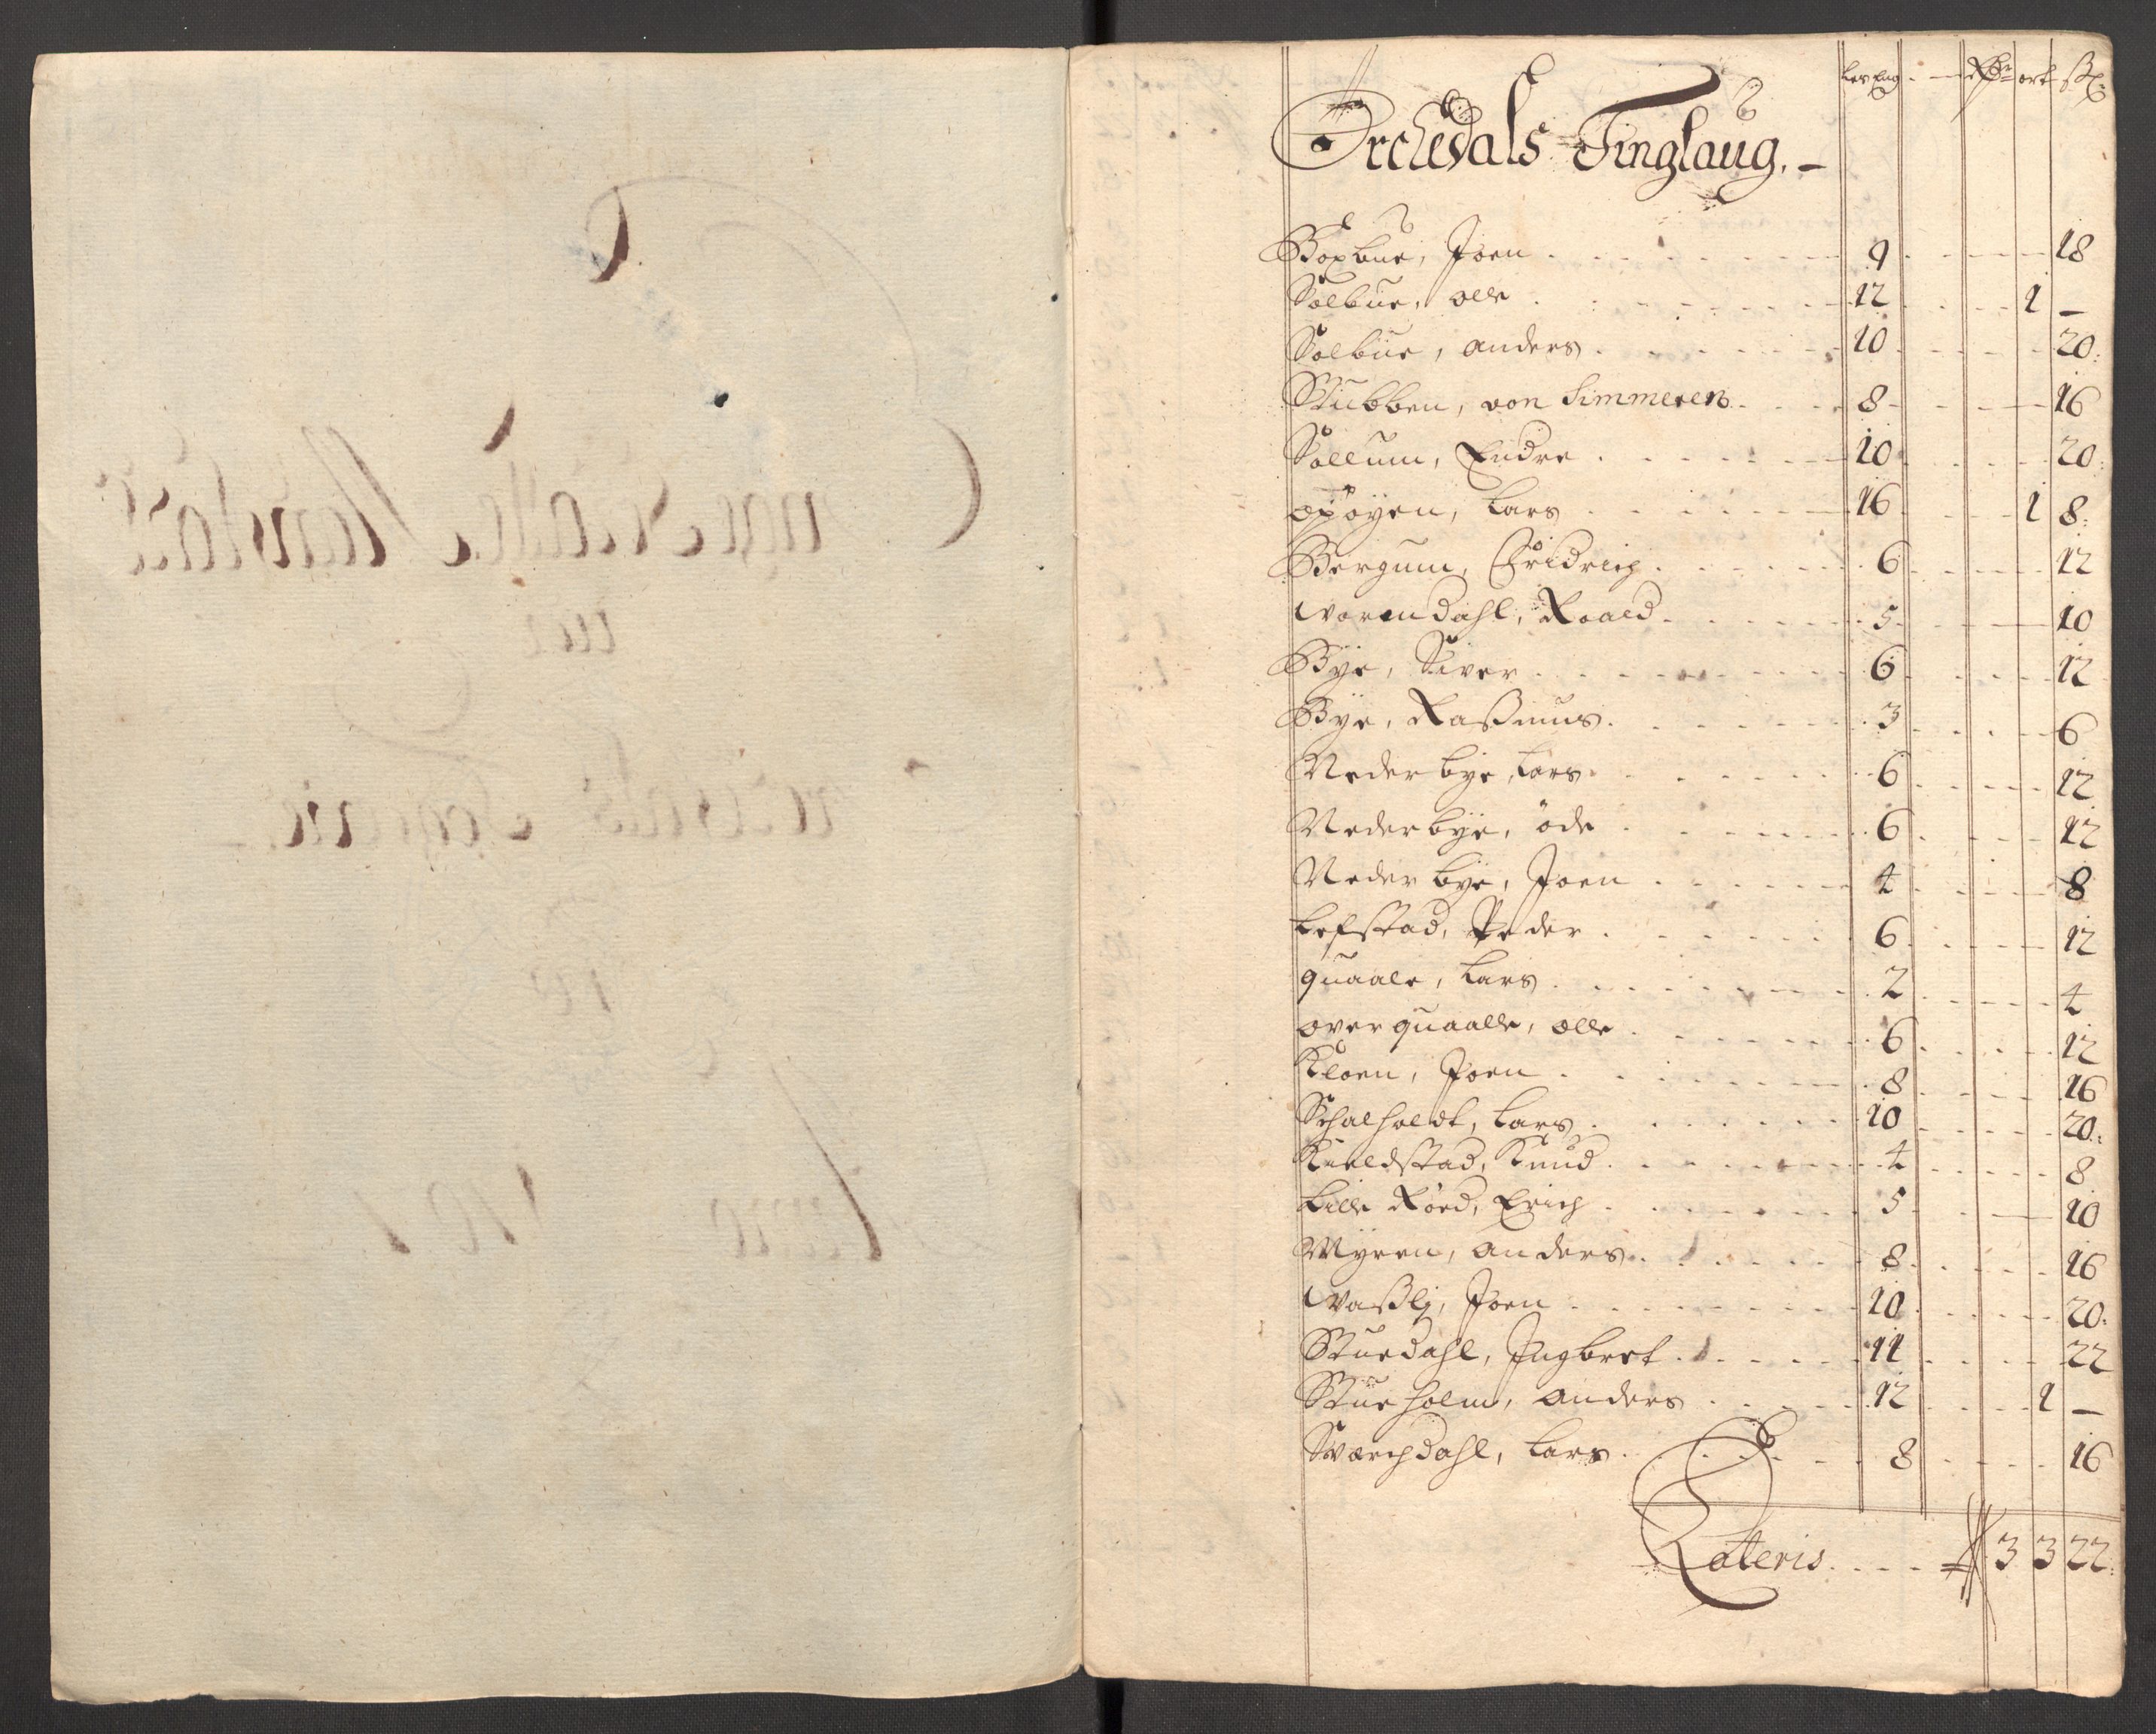 Orchedals Tinglaug.
Rdr ort ß
Boxbue, Joen 9 18
Solbue, olle 12 1 —
Solbue, anders 10 20
Stubben, von Simmeren 8 16
Sollum, Endre 10 20
oxöyen, Lars 16 1 8
Bergum, Fridrich 6 12
Worendahl, Roald 5 10
Bye, Siver 6 12
Bye, Raßmus 3 6
Nederbye, Lars 6 12
Nederbye, öde 6 12
Nederbye, Joen 4 8
Lefstad, Peder 6 12
quaale, Lars 2 4
over quaalle, olle 6 12
Kloen, Joen 8 16
Schalholdt, Lars 10 20
Kieldstad, Knud 4 8
Lille Röed, Erich 5 10
Myren, anders 8 16
Waßlj, Joen 10 20
Stuedahl, Ingbret 11 22
Stueholm, anders 12 1 —
Swerchdahl, Lars 8 16
Lateris 3 3 22